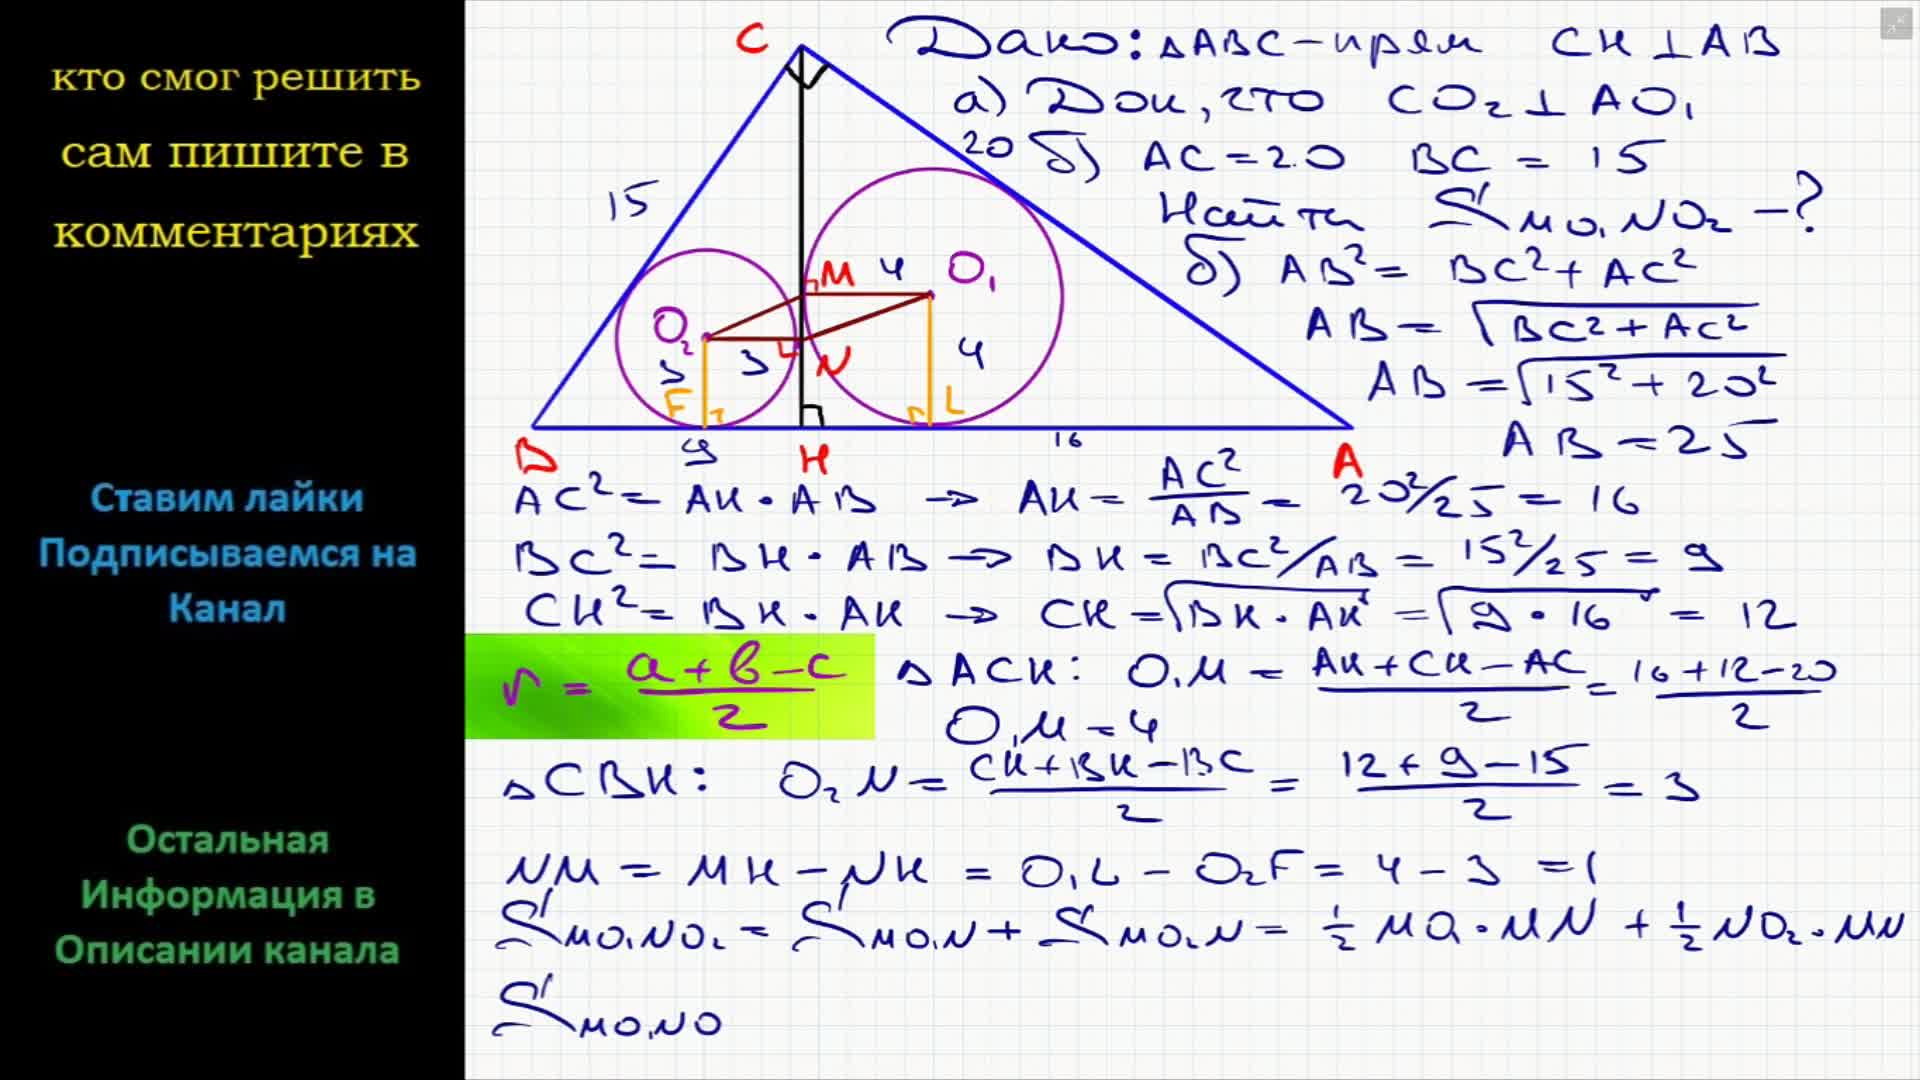 кто смог решить
сам пишите в
комментариях
Ставим лайки
Подписываемся на
Канал
Остальная
Информация в
Описании канала
C
15
20
M
4
O₁
O₂
3
3
N
4
F
L
B
9
H
16
A
Дано: △ABC – прям CH ⊥ AB
а) Док, что CO₂ ⊥ AO₁
б) AC = 20 BC = 15
Найти S MO₁NO₂ – ?
б) AB² = BC² + AC²
AB = √BC² + AC²
AB = √15² + 20²
AB = 25
AC² = AH · AB → AH = AC²/AB = 20²/25 = 16
BC² = BH · AB → BH = BC²/AB = 15²/25 = 9
CH² = BH · AH → CH = √BH · AH = √9 · 16 = 12
r = a + b – c / 2
△ACH: O₁M = AH + CH – AC / 2 = 16 + 12 – 20 / 2
O₁M = 4
△CBH: O₂N = CH + BH – BC / 2 = 12 + 9 – 15 / 2 = 3
NM = MH – NH = O₁L – O₂F = 4 – 3 = 1
S MO₁NO₂ = S MO₁N + S MO₂N = ½ MO₁ · MN + ½ NO₂ · MN
S MO₁NO